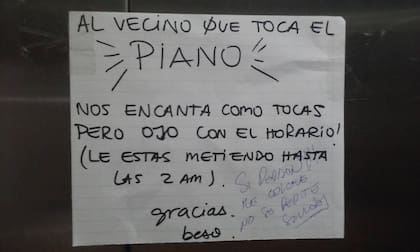 AL VECINO QUE TOCA EL
PIANO
NOS ENCANTA COMO TOCAS
PERO OJO CON EL HORARIO!
(LE ESTAS METIENDO HASTA
LAS 2 AM).
gracias.
beso.
SI PERDON!!
ME COLGUÉ
NO SE REPITE